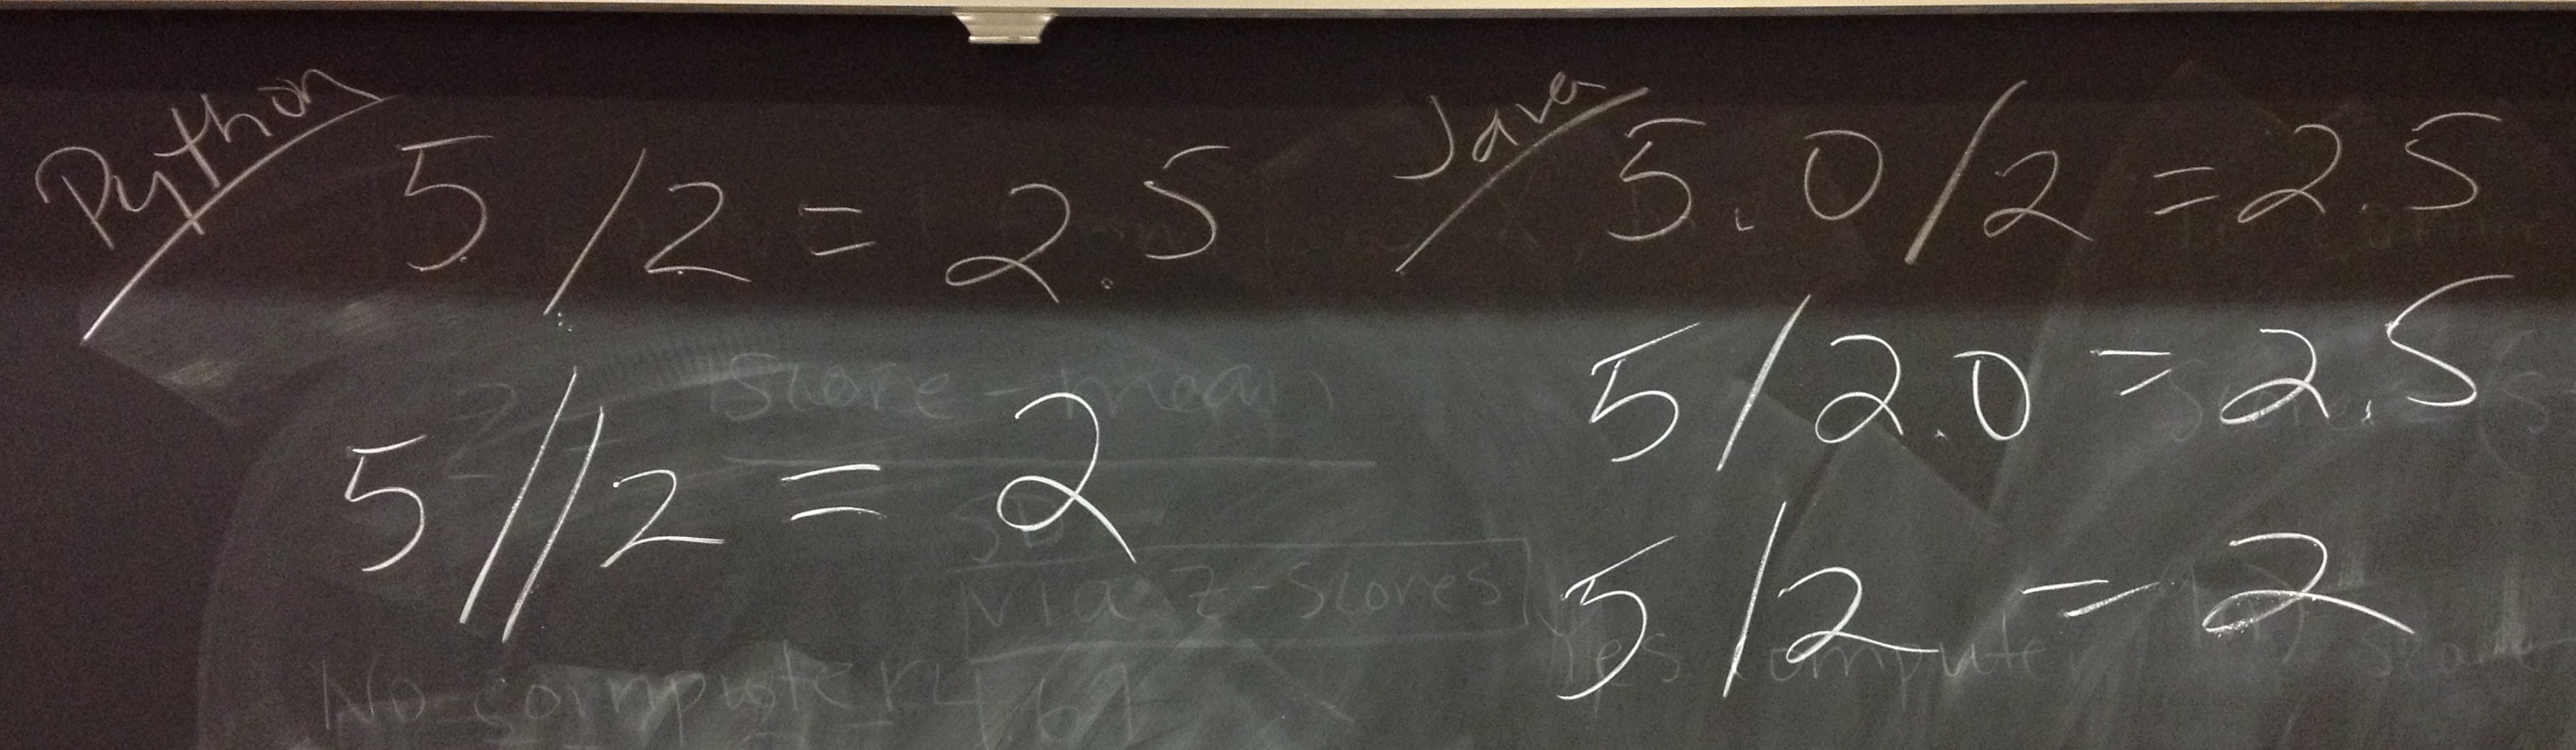 Python
5/2 = 2.5
5//2 = 2
Java
5.0/2 = 2.5
5/2.0 = 2.5
5/2 = 2
Score - mean
SD
via z-scores
No computer
Yes computer